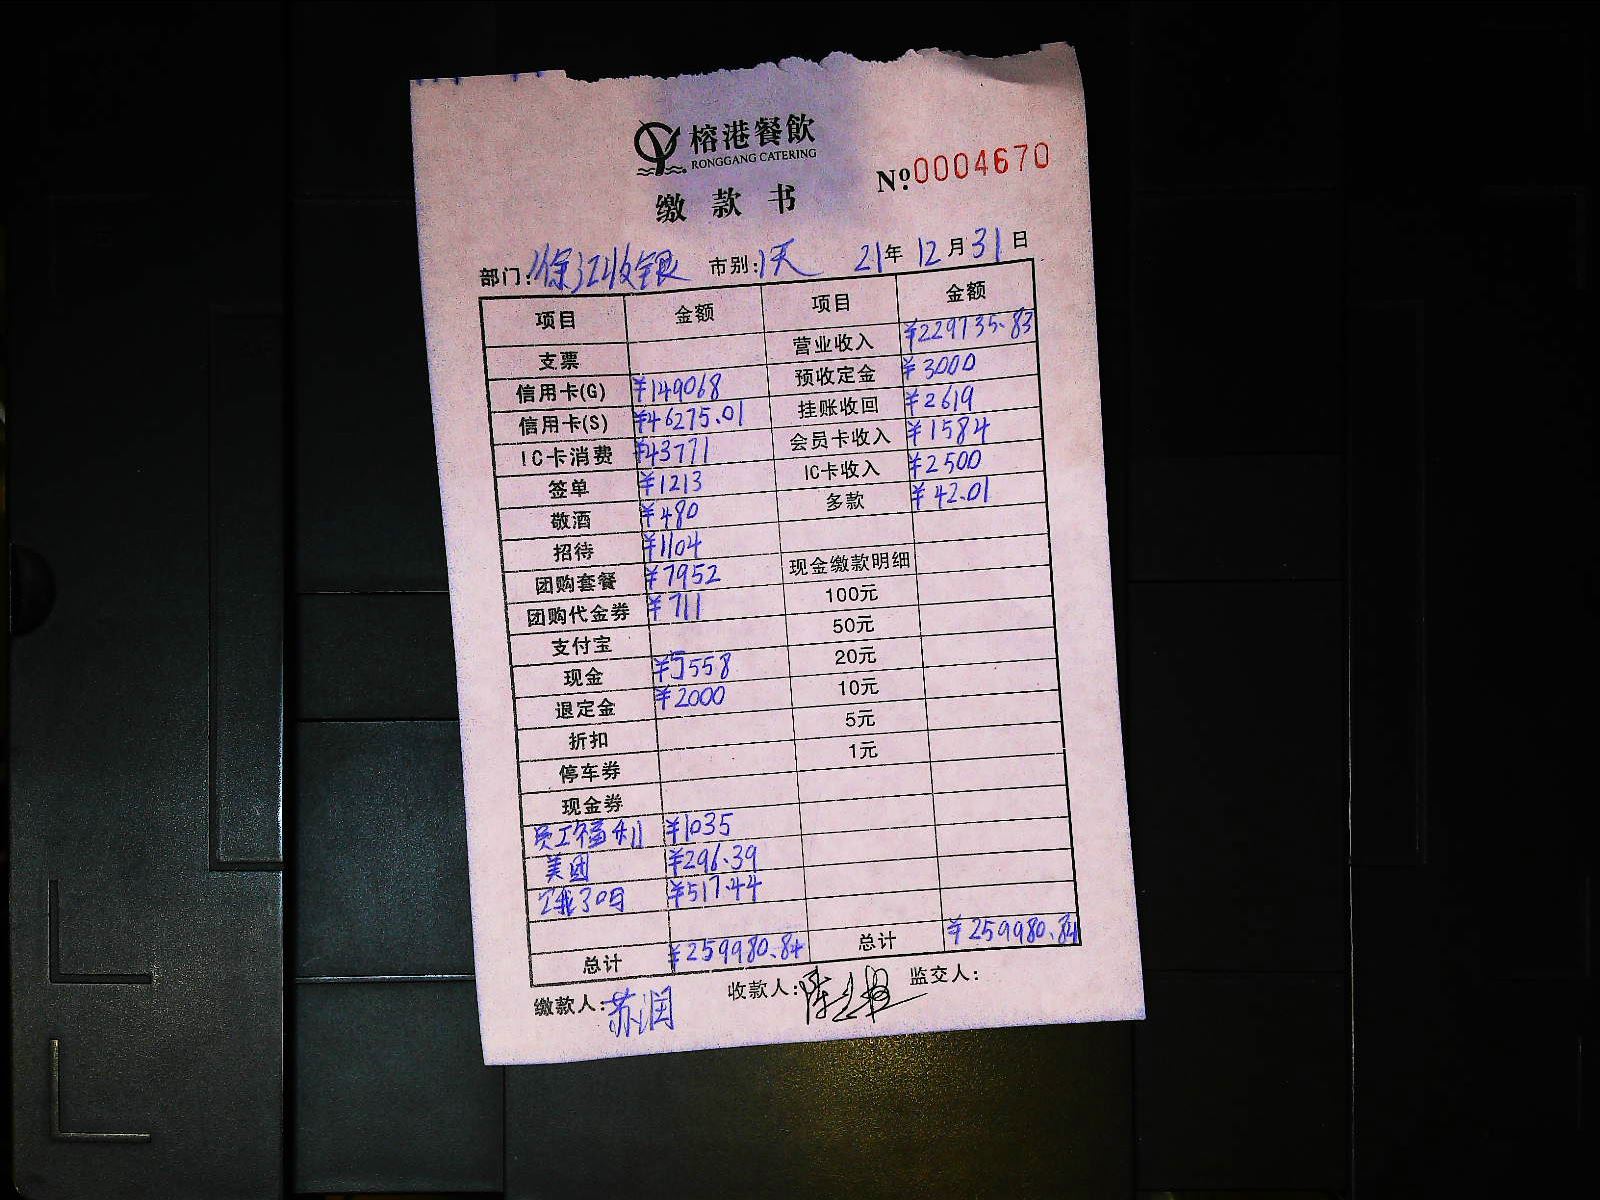 榕港餐飲
RONGGANG CATERING
缴款书
№0004670
部门: 徐汇收银 市别: 1天 21年12月31日
项目 金额 项目 金额
支票 营业收入 ¥229735.83
信用卡(G) ¥149068 预收定金 ¥3000
信用卡(S) ¥46275.01 挂账收回 ¥2619
IC卡消费 ¥43771 会员卡收入 ¥1584
签单 ¥1213 IC卡收入 ¥2500
敬酒 ¥480 多款 ¥42.01
招待 ¥1104
团购套餐 ¥7952 现金缴款明细
团购代金券 ¥711 100元
支付宝 50元
现金 ¥5558 20元
退定金 ¥2000 10元
折扣 5元
停车券 1元
现金券
员工福利 ¥1035
美团 ¥296.39
¥517.44
总计 ¥259980.84 总计 ¥259980.84
缴款人: 苏润 收款人: 监交人: